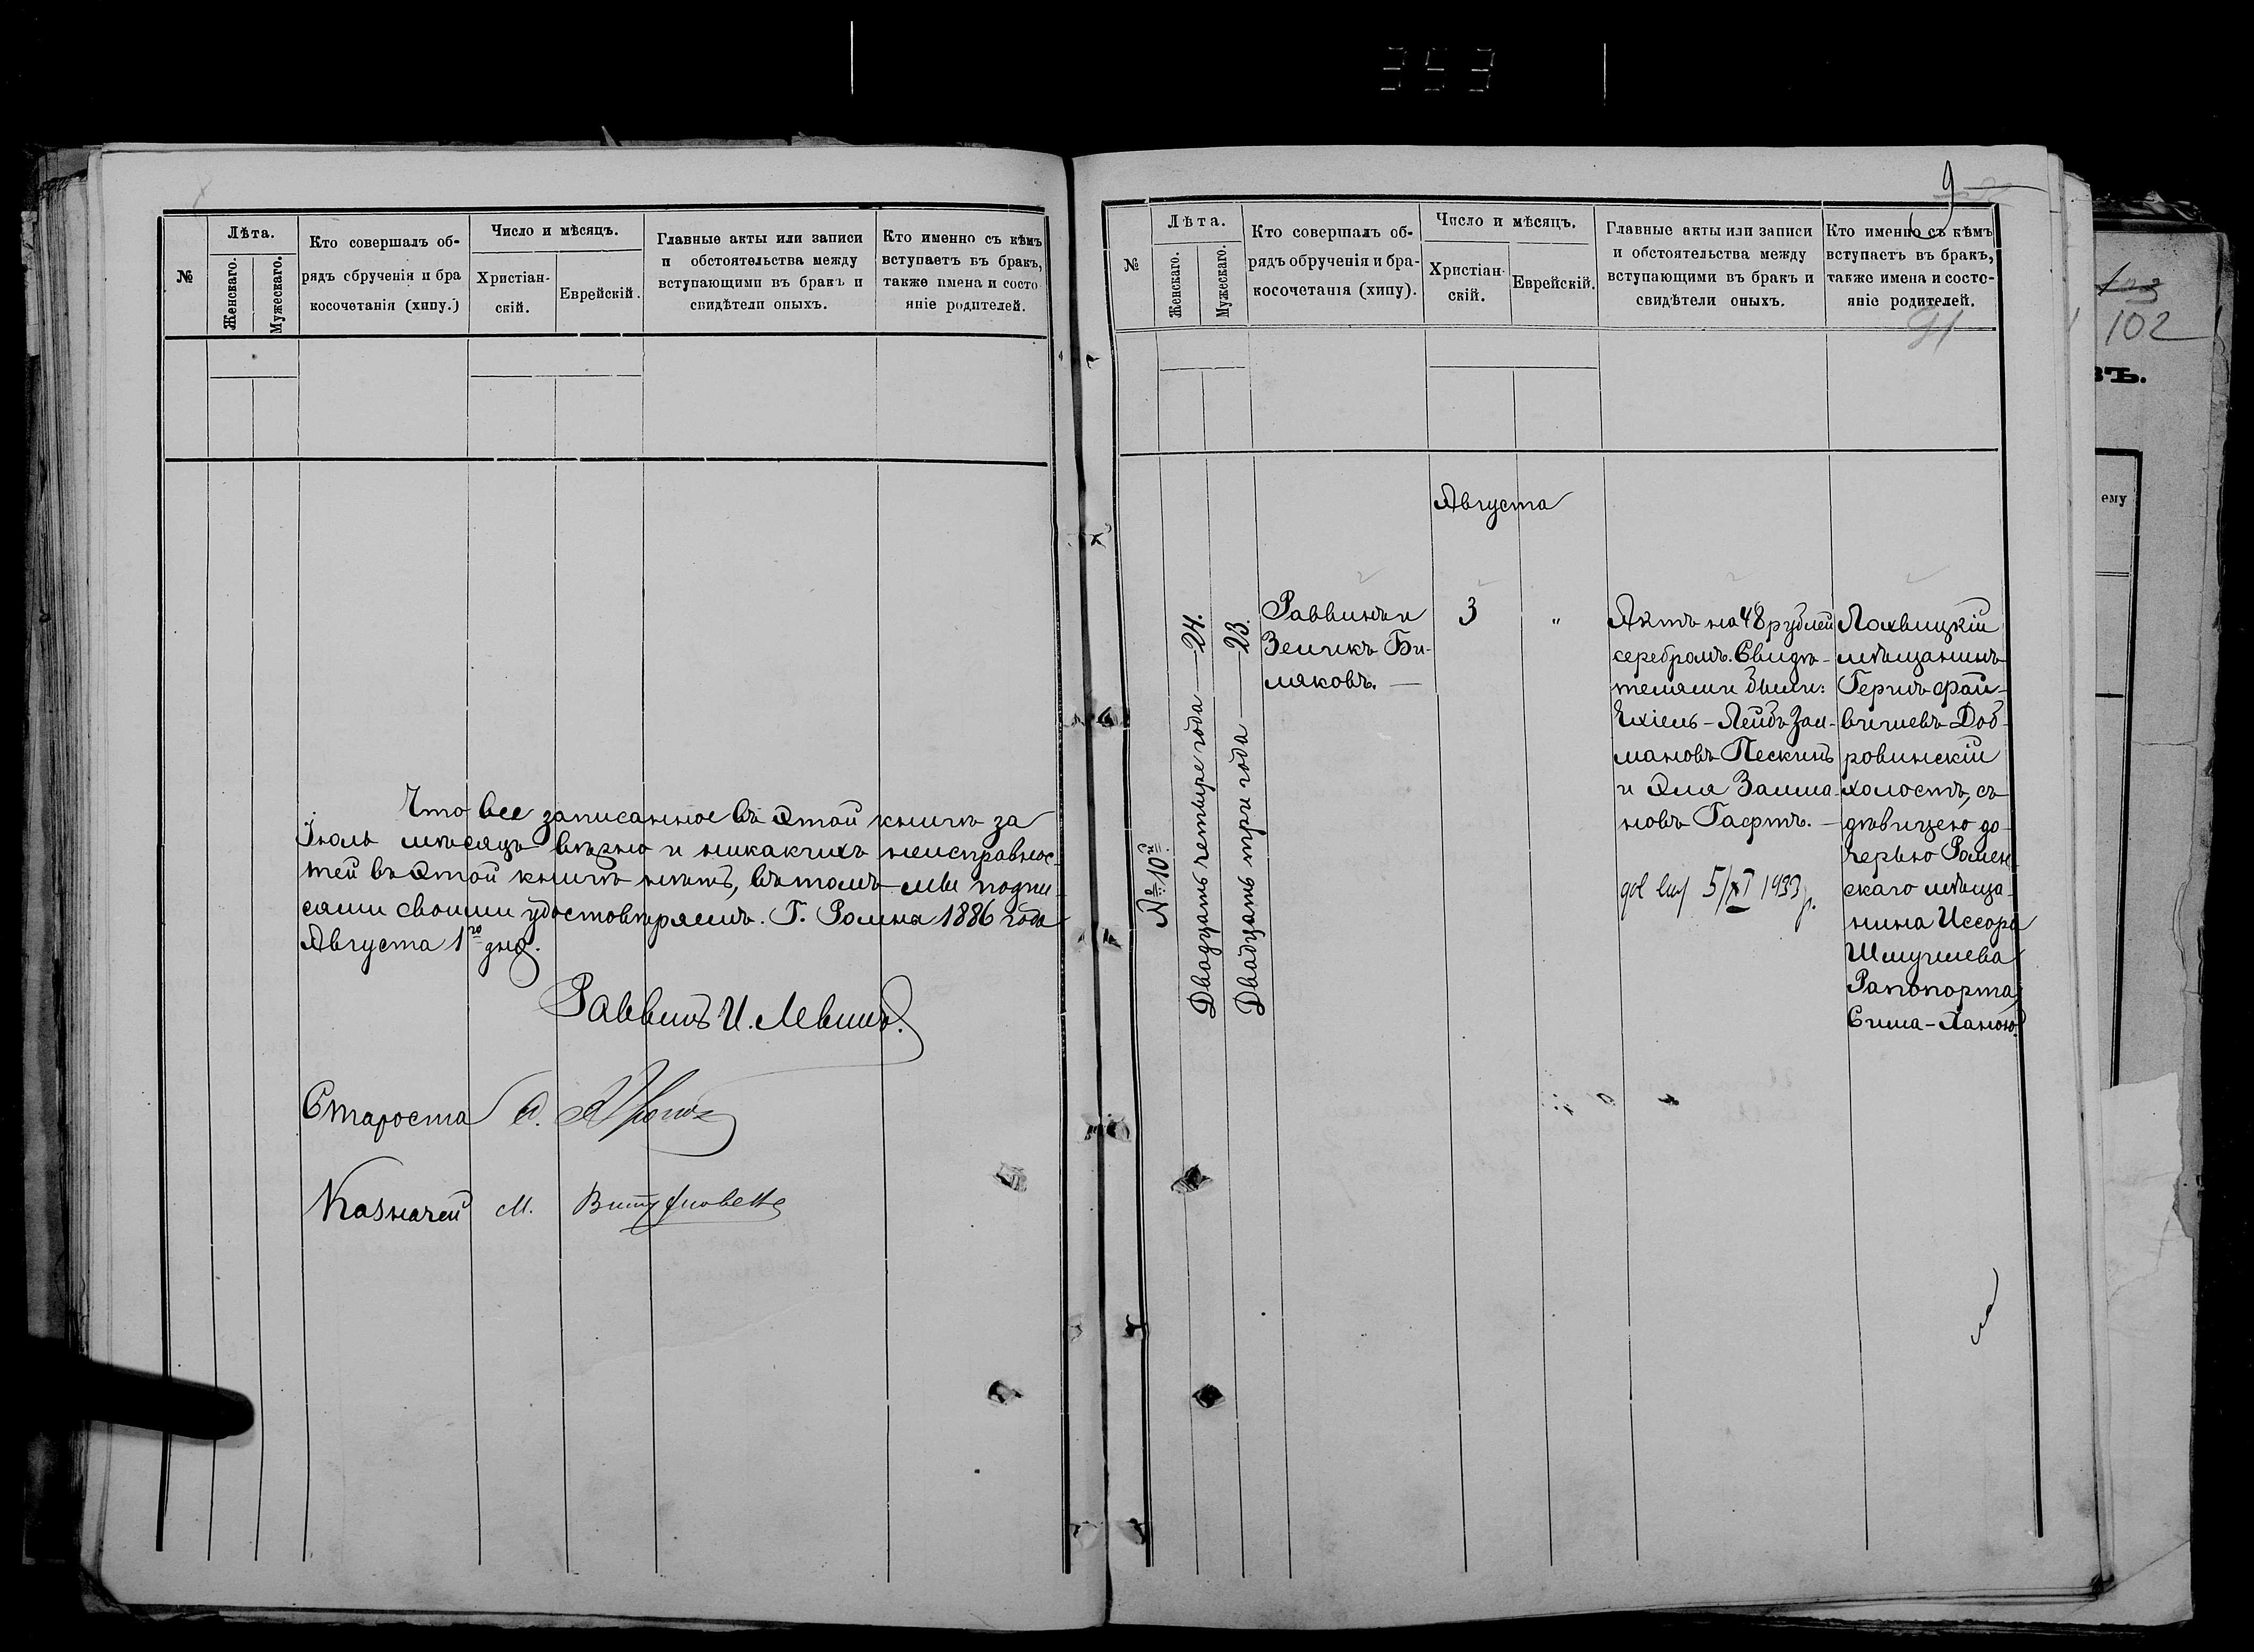 353
№
Лѣта.
Женскаго.
Мужескаго.
Кто совершалъ об-
рядъ обрученія и бра
косочетанія (хипу.)
Число и мѣсяцъ.
Христіан-
скій.
Еврейскій.
Главные акты или записи
и обстоятельства между
вступающими въ бракъ и
свидѣтели оныхъ.
Кто именно съ кѣмъ
вступаетъ въ бракъ,
также имена и состо
яніе родителей.
Что все записанное въ этой книгѣ за
Іюль мѣсяцъ вѣрно и никакихъ неисправнос-
тей въ этой книгѣ нѣтъ, въ томъ мы подпи-
сами своими удостовѣряемъ. Г. Ромна 1886 года
Августа 1го дня.
Раввинъ И. Левинъ.
Староста А.
Казначей М.
9
№
Лѣта.
Женскаго.
Мужескаго.
Кто совершалъ об-
рядъ обрученія и бра-
косочетанія (хипу).
Число и мѣсяцъ.
Христіан-
скій.
Еврейскій.
Главные акты или записи
и обстоятельства между
вступающими въ бракъ и
свидѣтели оныхъ.
Кто именно съ кѣмъ
вступаетъ въ бракъ,
также имена и состо-
яніе родителей.
91
Августа
№ 10й
Двадцать четыре года — 24.
Двадцать три года — 23.
Раввинъ и
Зеликъ Би-
ляковъ. —
3
"
Актъ на 48 рублей
серебромъ. Свидѣ-
телями были:
Ихіель-Лейбъ Зал-
мановъ Пескинъ
и Эля Залма-
новъ Гафтъ. —
5/XI 1933 р.
Лохвицкій
мѣщанинъ
Герцъ Фай-
вишевъ Доб-
ровинскій
холостъ, съ
дѣвицею до-
черью Ромен-
скаго мѣща-
нина Иссора
Шмуилева
Рапопорта
Сима-Ханою.
102
въ.
ему